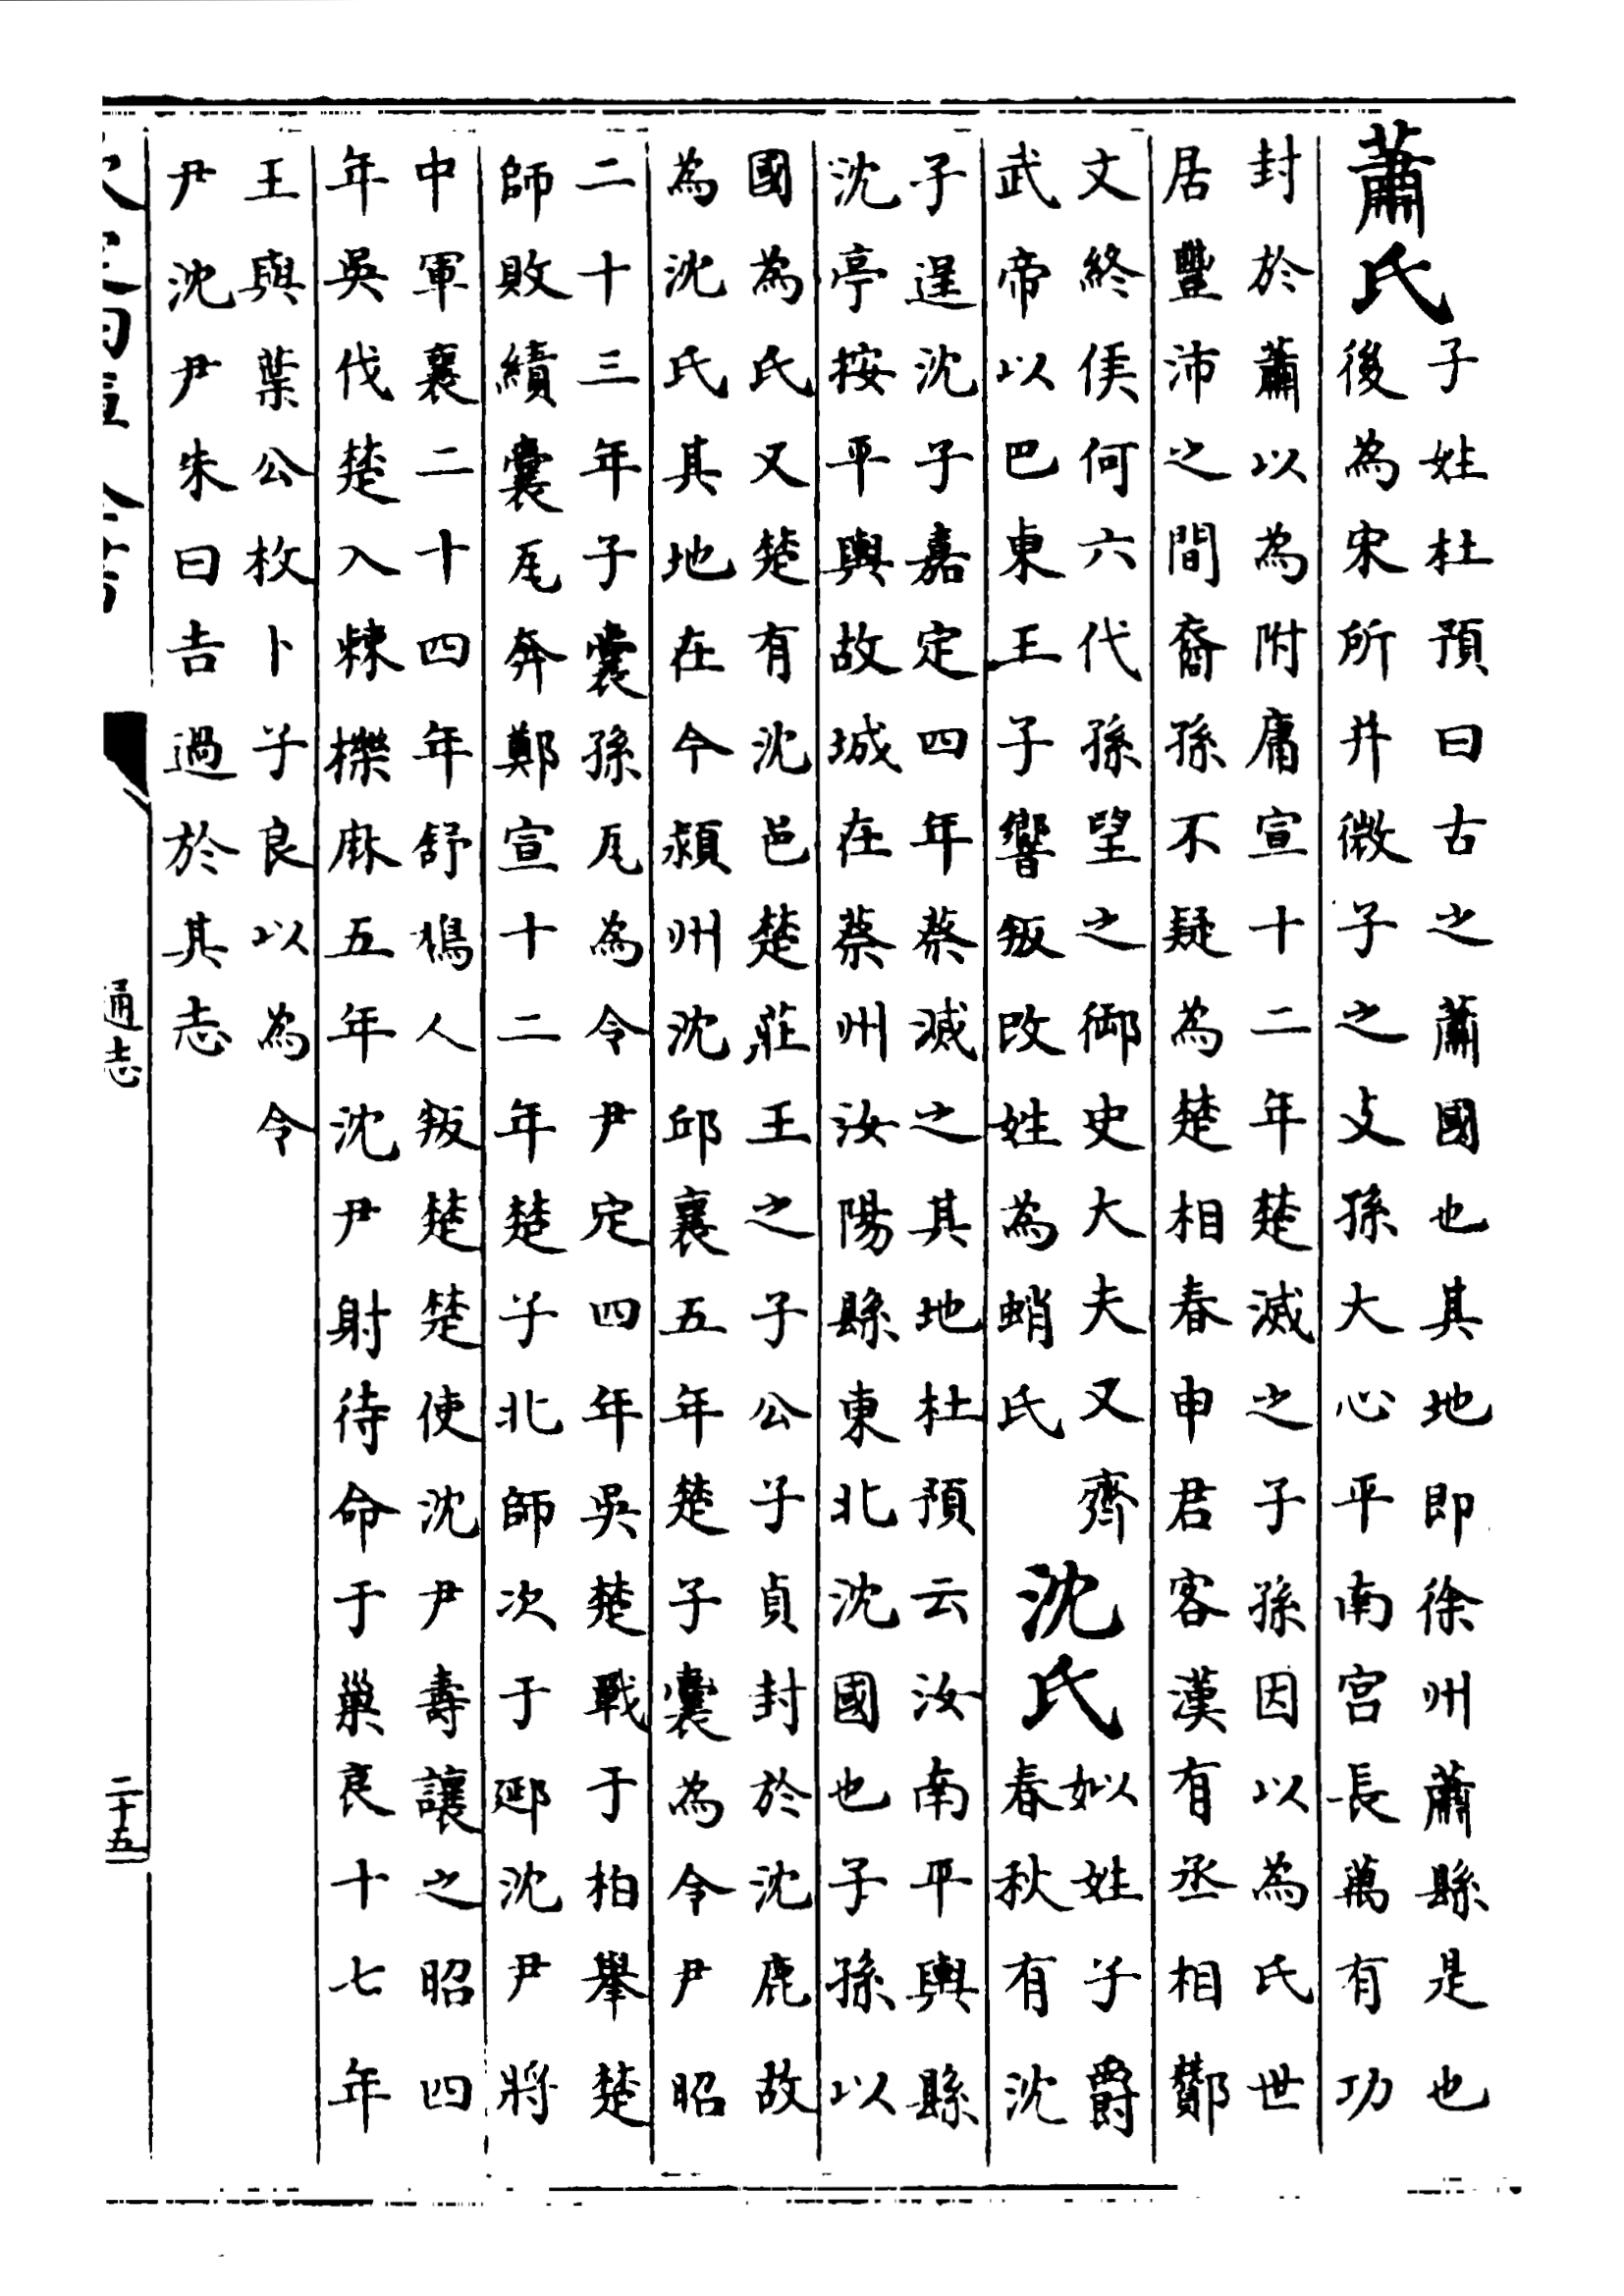 蕭氏
子姓杜預曰古之蕭國也其地即徐州蕭縣是也
後為宋所并微子之支孫大心平南宮長萬有功
封於蕭以為附庸宣十二年楚滅之子孫因以為氏世
居豐沛之間裔孫不疑為楚相春申君客漢有丞相酇
文終侯何六代孫望之御史大夫又齊
武帝以巴東王子響叛改姓為蛸氏
沈氏
姒姓子爵
春秋有沈
子逞沈子嘉定四年蔡滅之其地杜預云汝南平輿縣
沈亭按平輿故城在蔡州汝陽縣東北沈國也子孫以
國為氏又楚有沈邑楚莊王之子公子貞封於沈鹿故
為沈氏其地在今潁州沈邱襄五年楚子囊為令尹昭
二十三年子囊孫瓦為令尹定四年吳楚戰于柏舉楚
師敗績囊瓦奔鄭宣十二年楚子北師次于郔沈尹將
中軍襄二十四年舒鳩人叛楚楚使沈尹壽讓之昭四
年吳伐楚入棘櫟麻五年沈尹射待命于巢哀十七年
王與葉公枚卜子良以為令
尹沈尹朱曰吉過於其志
通志
二十五